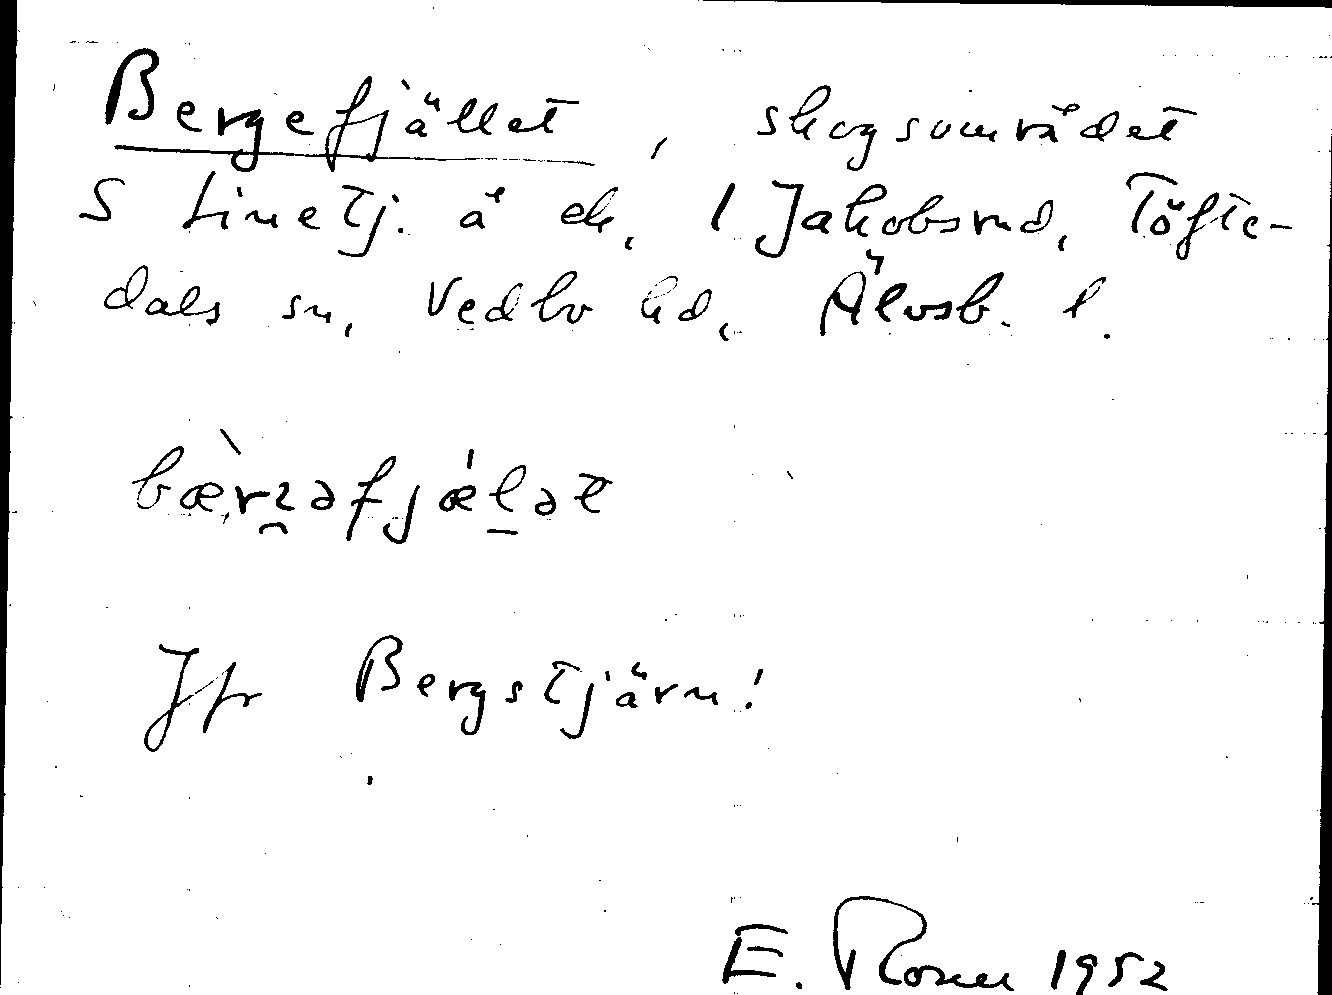 Bergefjället, skogsområdet
S Linetj. å ek, 1 Jakobsrud, Töfte-
dals sn, Vedbo hd, Älvsb. l.
bæ̀rꝛəfjǽl̲ət
Jfr Bergstjärn!
E. Rosell 1952